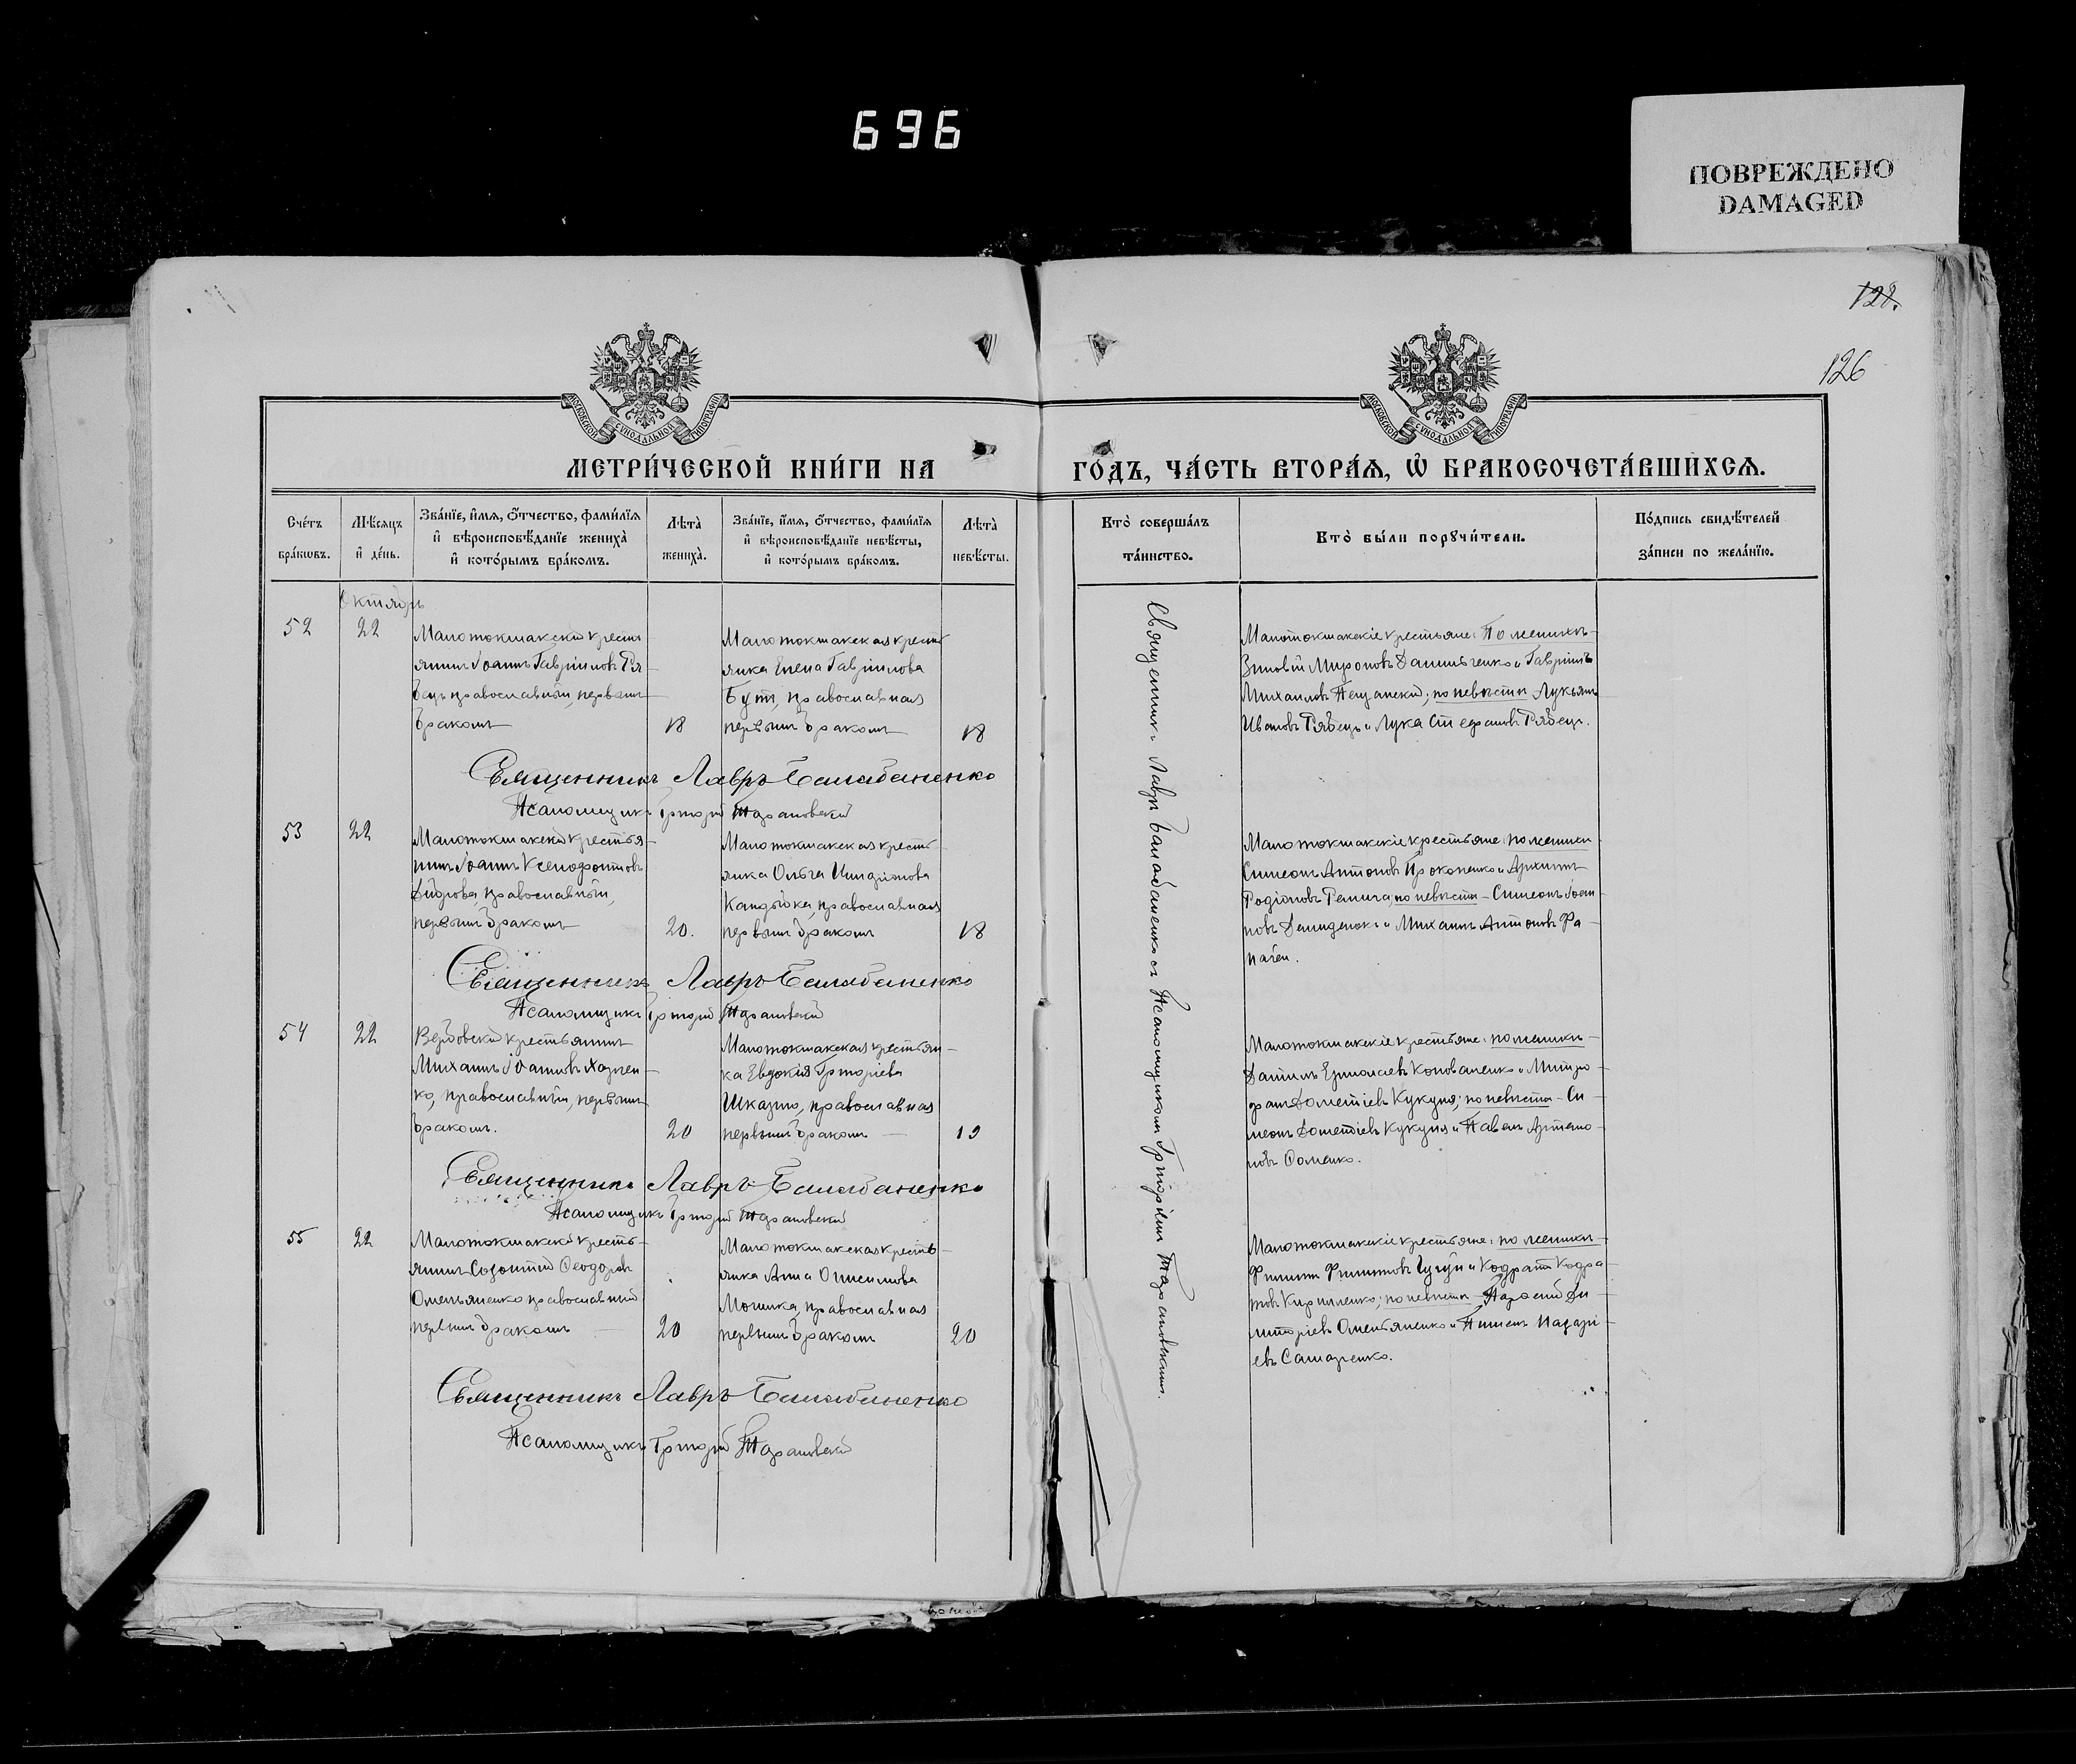 696
ПОВРЕЖДЕНО
DAMAGED
128.
126
МОСКОВСКОЙ СѴНОДАЛЬНОЙ ТИПОГРАФІИ
МОСКОВСКОЙ СѴНОДАЛЬНОЙ ТИПОГРАФІИ
МЕТРИ́ЧЕСКОЙ КНИ́ГИ НА
ГО́ДЪ, ЧА́СТЬ ВТОРА́Я, Ѡ҆ БРАКОСОЧЕТА́ВШИХСѦ.
Сче́тъ бра́кѡвъ.
Мѣ́сяцъ и҆ де́нь.
Зва́нїе, и҆́мѧ, ѻ҆́тчество, фами́лїѧ и҆ вѣроисповѣ́данїе жениха̀ и҆ кото́рымъ бра́комъ.
Лѣта̀ жениха̀.
Зва́нїе, и҆́мѧ, ѻ҆́тчество, фами́лїѧ и҆ вѣроисповѣ́данїе невѣ́сты, и҆ кото́рымъ бра́комъ.
Лѣта̀ невѣ́сты.
Кто̀ соверша́лъ та́инство.
Кто̀ бы́ли порꙋчи́тели.
По́дпись свидѣ́телей за́писи по жела́нїю.
Октябрь
52
22
Малотокмакскій кресть
янинъ Іоаннъ Гавріиловъ Ря
бецъ, православный, первымъ
бракомъ
18
Малотокмакская кресть
янка Елена Гавріилова
Бутъ, православная
первымъ бракомъ
18
Малотокмакскіе крестьяне: По женихѣ
Зиновій Мироновъ Данильченко и Гавріилъ
Михаиловъ Пещанскій; по невѣстѣ Лукьянъ
Ивановъ Рябецъ и Лука Стефановъ Рябецъ.
Священникъ Лавръ Балабаненко
Псаломщикъ Григорій Тарановскій
53
22
Малотокмакскій крестья
нинъ Іоаннъ Ксенофонтовъ
Дидрова, православный,
первымъ бракомъ
20.
Малотокмакская кресть
янка Ольга
Кандыбка, православная
первымъ бракомъ
18
Малотокмакскіе крестьяне: по женихѣ
Симеонъ Антоновъ Прокопенко и Архиппъ
Родіоновъ по невѣстѣ - Симеонъ Іоан
новъ Демиденко и Михаилъ Антоновъ
Священникъ Лавръ Балабаненко
Псаломщикъ Григорій Тарановскій
54
22
Вербовскій крестьянинъ
Михаилъ Іоанновъ Харчен
ко, православный, первымъ
бракомъ.
20
Малотокмакская крестьян
ка Евдокія Григоріева
Шкарпо, православная
первымъ бракомъ
19
Малотокмакскіе крестьяне: по женихѣ
Даніилъ Ермолаевъ Коноваленко и Митро
фанъ Дометіевъ Кукуня; по невѣстѣ - Си
меонъ Дометіевъ Кукуня и Павелъ Артемо
новъ Фоменко.
Священникъ Лавръ Балабаненко
Псаломщикъ Григорій Тарановскій
55
22
Малотокмакскій кресть
янинъ Созонтій Ѳеодоровъ
Омельяненко православный
первымъ бракомъ
20
Малотокмакская кресть
янка Анна Онисимова
Мочилка, православная
первымъ бракомъ
20
Малотокмакскіе крестьяне: по женихѣ
Филиппъ Филипповъ Чугуй и Кодратъ Кодра
товъ Кириленко; по невѣстѣ Тарасій Ди
митріевъ Омельяненко и Пименъ Назарі
евъ Самаренко.
Священникъ Лавръ Балабаненко
Псаломщикъ Григорій Тарановскій
Священникъ Лавръ Балабаненко съ Псаломщикомъ Григоріемъ Тарановскимъ.